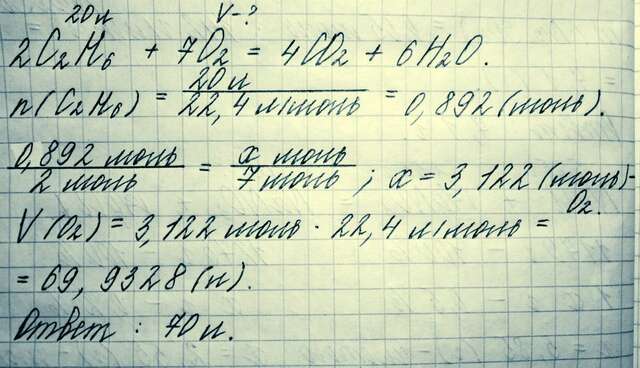 20 л V-?
2C₂H₆ + 7O₂ = 4CO₂ + 6H₂O.
n(C₂H₆) = 20 л / 22,4 л/моль = 0,892 (моль).
0,892 моль / 2 моль = x моль / 7 моль ; x = 3,122 (моль)-
O₂.
V(O₂) = 3,122 моль · 22,4 л/моль =
= 69,9328 (л).
Ответ : 70 л.